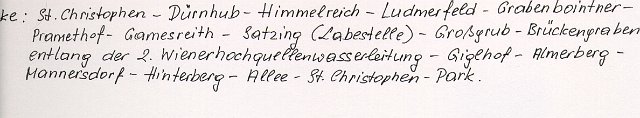 ke: St. Christophen - Dürnhub - Himmelreich - Ludmerfeld - Grabenbointner-
Pramethof - Gamesreith - Satzing (Labestelle) - Großgrub - Brückengraben
entlang der 2. Wienerhochquellenwasserleitung - Giglhof - Almerberg -
Mannersdorf - Hinterberg - Allee - St. Christophen - Park.